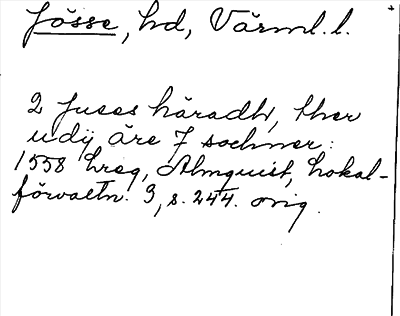 Jösse, hd, Värml. l.
2 Juses häradh, ther
udÿ äre 7 sochner:
1558 hreg, Almquist, Lokal-
förvaltn. 3, s. 244. orig.